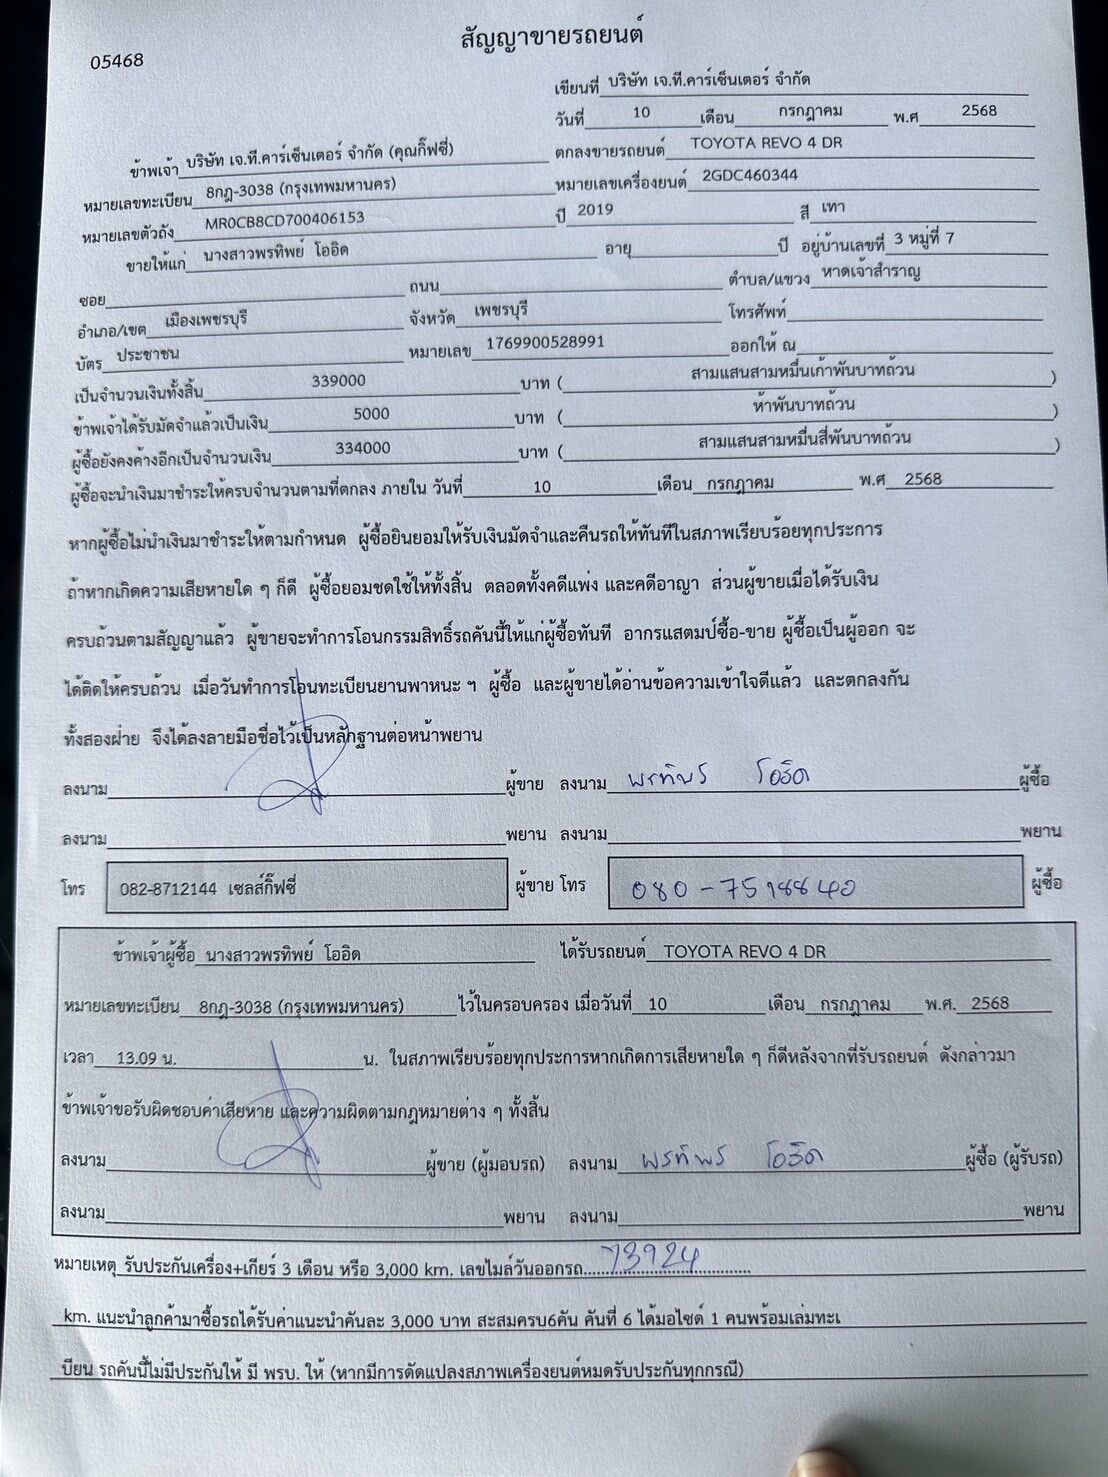 สัญญาขายรถยนต์
05468
เขียนที่ บริษัท เจ.ที.คาร์เซ็นเตอร์ จำกัด
วันที่ 10 เดือน กรกฎาคม พ.ศ 2568
ข้าพเจ้า บริษัท เจ.ที.คาร์เซ็นเตอร์ จำกัด (คุณกิ๊ฟซี่) ตกลงขายรถยนต์ TOYOTA REVO 4 DR
หมายเลขทะเบียน 8กฎ-3038 (กรุงเทพมหานคร) หมายเลขเครื่องยนต์ 2GDC460344
หมายเลขตัวถัง MR0CB8CD700406153 ปี 2019 สี เทา
ขายให้แก่ นางสาวพรทิพย์ โออิด อายุ ปี อยู่บ้านเลขที่ 3 หมู่ที่ 7
ซอย ถนน ตำบล/แขวง หาดเจ้าสำราญ
อำเภอ/เขต เมืองเพชรบุรี จังหวัด เพชรบุรี โทรศัพท์
บัตร ประชาชน หมายเลข 1769900528991 ออกให้ ณ
เป็นจำนวนเงินทั้งสิ้น 339000 บาท ( สามแสนสามหมื่นเก้าพันบาทถ้วน )
ข้าพเจ้าได้รับมัดจำแล้วเป็นเงิน 5000 บาท ( ห้าพันบาทถ้วน )
ผู้ซื้อยังคงค้างอีกเป็นจำนวนเงิน 334000 บาท ( สามแสนสามหมื่นสี่พันบาทถ้วน )
ผู้ซื้อจะนำเงินมาชำระให้ครบจำนวนตามที่ตกลง ภายใน วันที่ 10 เดือน กรกฎาคม พ.ศ 2568
หากผู้ซื้อไม่นำเงินมาชำระให้ตามกำหนด ผู้ซื้อยินยอมให้รับเงินมัดจำและคืนรถให้ทันทีในสภาพเรียบร้อยทุกประการ
ถ้าหากเกิดความเสียหายใด ๆ ก็ดี ผู้ซื้อยอมชดใช้ให้ทั้งสิ้น ตลอดทั้งคดีแพ่ง และคดีอาญา ส่วนผู้ขายเมื่อได้รับเงิน
ครบถ้วนตามสัญญาแล้ว ผู้ขายจะทำการโอนกรรมสิทธิ์รถคันนี้ให้แก่ผู้ซื้อทันที อากรแสตมป์ซื้อ-ขาย ผู้ซื้อเป็นผู้ออก จะ
ได้ติดให้ครบถ้วน เมื่อวันทำการโอนทะเบียนยานพาหนะ ฯ ผู้ซื้อ และผู้ขายได้อ่านข้อความเข้าใจดีแล้ว และตกลงกัน
ทั้งสองฝ่าย จึงได้ลงลายมือชื่อไว้เป็นหลักฐานต่อหน้าพยาน
ลงนาม ผู้ขาย ลงนาม พรทิพย์ โออิด ผู้ซื้อ
ลงนาม พยาน ลงนาม พยาน
โทร 082-8712144 เซลส์กิ๊ฟซี่ ผู้ขาย โทร ผู้ซื้อ
ข้าพเจ้าผู้ซื้อ นางสาวพรทิพย์ โออิด ได้รับรถยนต์ TOYOTA REVO 4 DR
หมายเลขทะเบียน 8กฎ-3038 (กรุงเทพมหานคร) ไว้ในครอบครอง เมื่อวันที่ 10 เดือน กรกฎาคม พ.ศ. 2568
เวลา 13.09 น. น. ในสภาพเรียบร้อยทุกประการหากเกิดการเสียหายใด ๆ ก็ดีหลังจากที่รับรถยนต์ ดังกล่าวมา
ข้าพเจ้าขอรับผิดชอบค่าเสียหาย และความผิดตามกฎหมายต่าง ๆ ทั้งสิ้น
ลงนาม ผู้ขาย (ผู้มอบรถ) ลงนาม พรทิพย์ โออิด ผู้ซื้อ (ผู้รับรถ)
ลงนาม พยาน ลงนาม พยาน
หมายเหตุ รับประกันเครื่อง+เกียร์ 3 เดือน หรือ 3,000 km. เลขไมล์วันออกรถ.....73924.....
km. แนะนำลูกค้ามาซื้อรถได้รับค่าแนะนำคันละ 3,000 บาท สะสมครบ6คัน คันที่ 6 ได้มอไซต์ 1 คนพร้อมเล่มทะเ
บียน รถคันนี้ไม่มีประกันให้ มี พรบ. ให้ (หากมีการดัดแปลงสภาพเครื่องยนต์หมดรับประกันทุกกรณี)